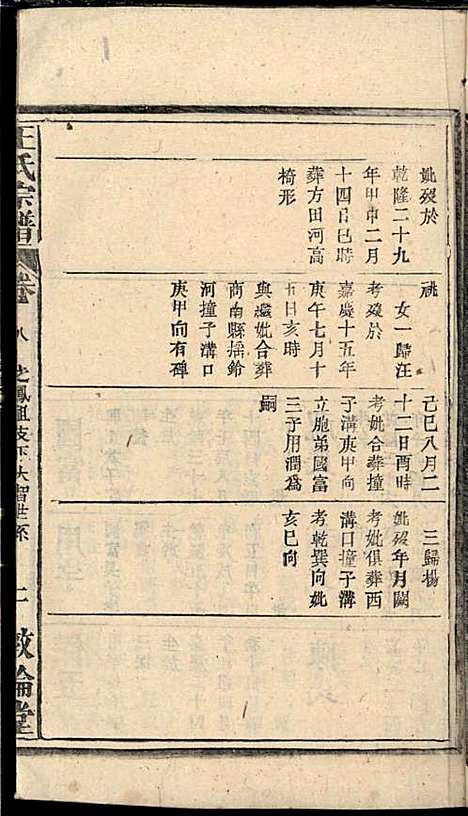 妣歿於
乾隆二十九
年甲申二月
十四日巳時
葬方田河高
椅形
祧
女一歸汪
考歿於
嘉慶十五年
庚午七月十
五日亥時
與繼妣合葬
商南縣搖鈴
河撞子溝口
庚甲向有碑
己巳八月二
十二日酉時
考妣合葬撞
子溝庚甲向
立胞弟國富
三子用潤為
嗣
三歸楊
妣歿年月闕
考妣俱葬西
溝口撞子溝
考乾巽向妣
亥巳向
王氏宗譜
卷
八
之鳳祖支下大智世系
二
敦倫堂